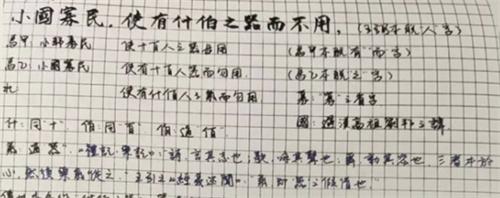 小國寡民，使有什伯之器而不用，（王弼本脫"人"字）
帛甲：小邦寡民 使十百人之器毋用 （帛甲本脫"有""而"字）
帛乙：小國寡民 使有十百人器而勿用 （帛乙本脫"之"字）
使有什佰人之器而勿用
國：避漢高祖劉邦之諱
什：同"十" 佰：同"百"
《禮記·樂記》："詩，言其志也；歌，詠其聲也；舞，動其容也，三者本於
心，然後樂器從之"王引之《經義述聞》